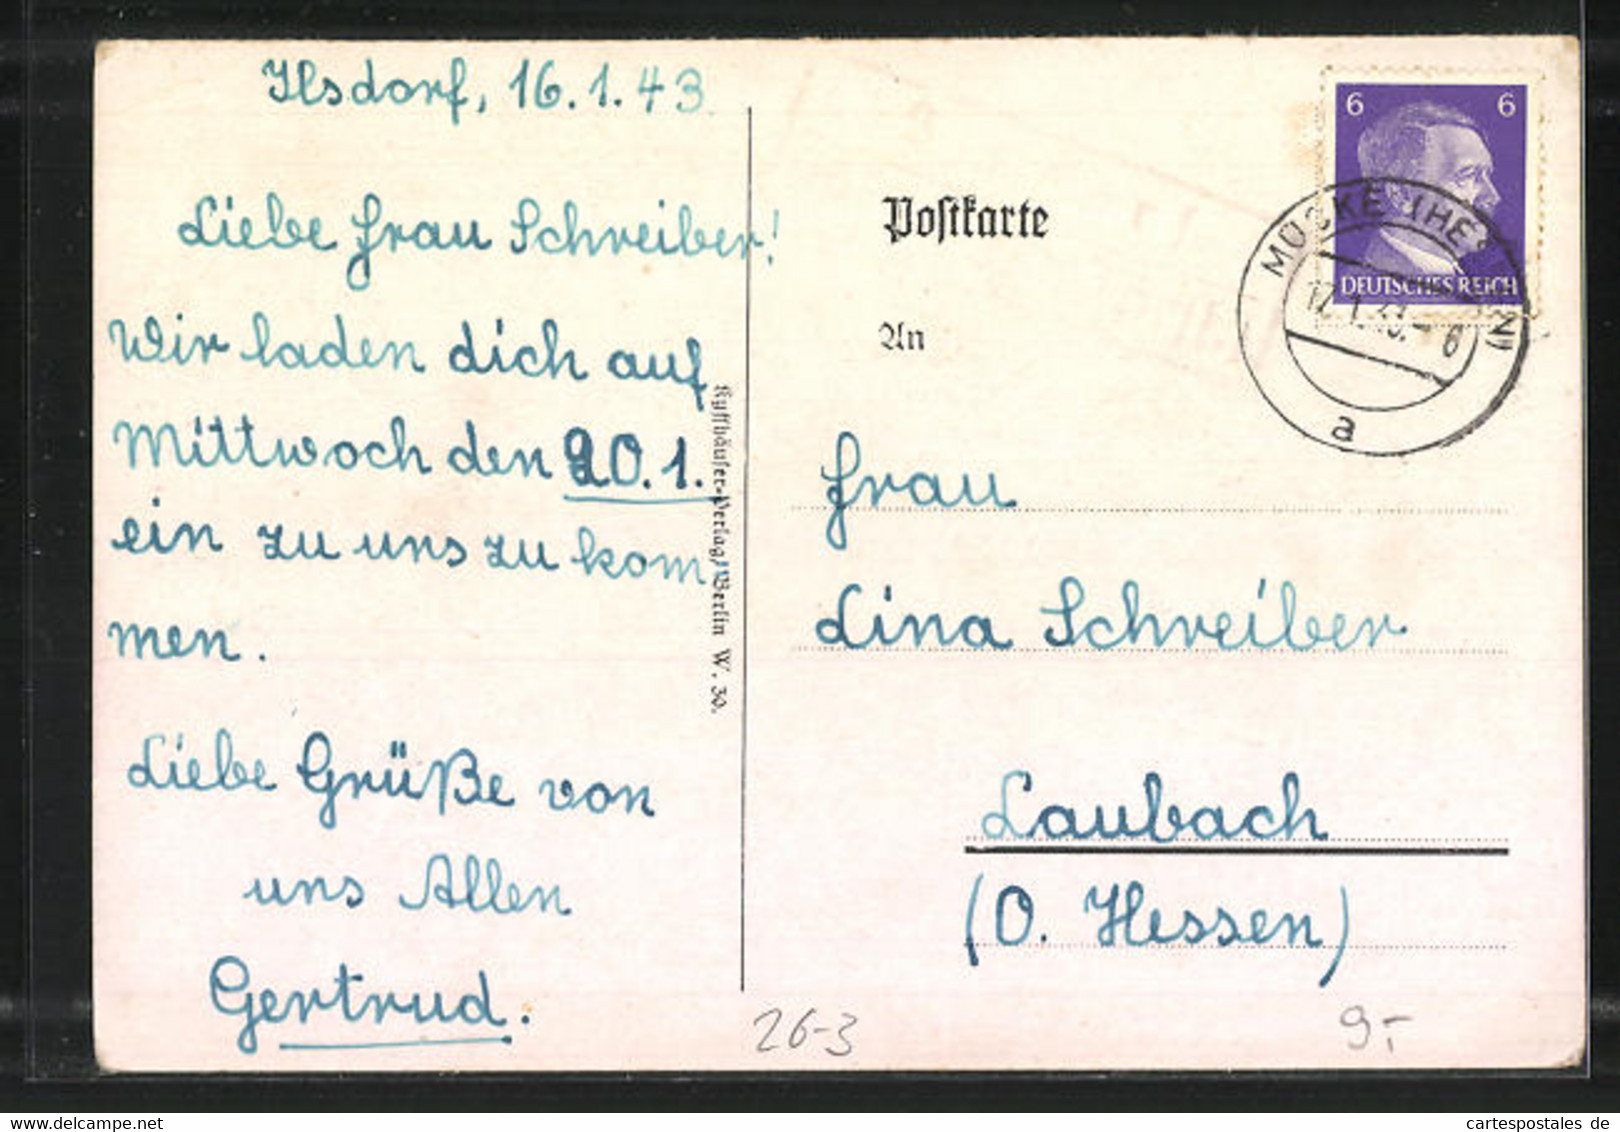 Ilsdorf, 16.1.43.
Liebe Frau Schreiber!
Wir laden dich auf
Mittwoch den 20.1.
ein zu uns zu kom
men.
Liebe Grüße von
uns Allen
Gertrud.
Kyffhäuser-Verlag, Berlin W. 30.
Postkarte
An
Frau
Lina Schreiber
Laubach
(O. Hessen)
6 6
DEUTSCHES REICH
MÜCKE (HESSEN)
17.1.43.- 8
a
26-3
9,-
cartespostales de